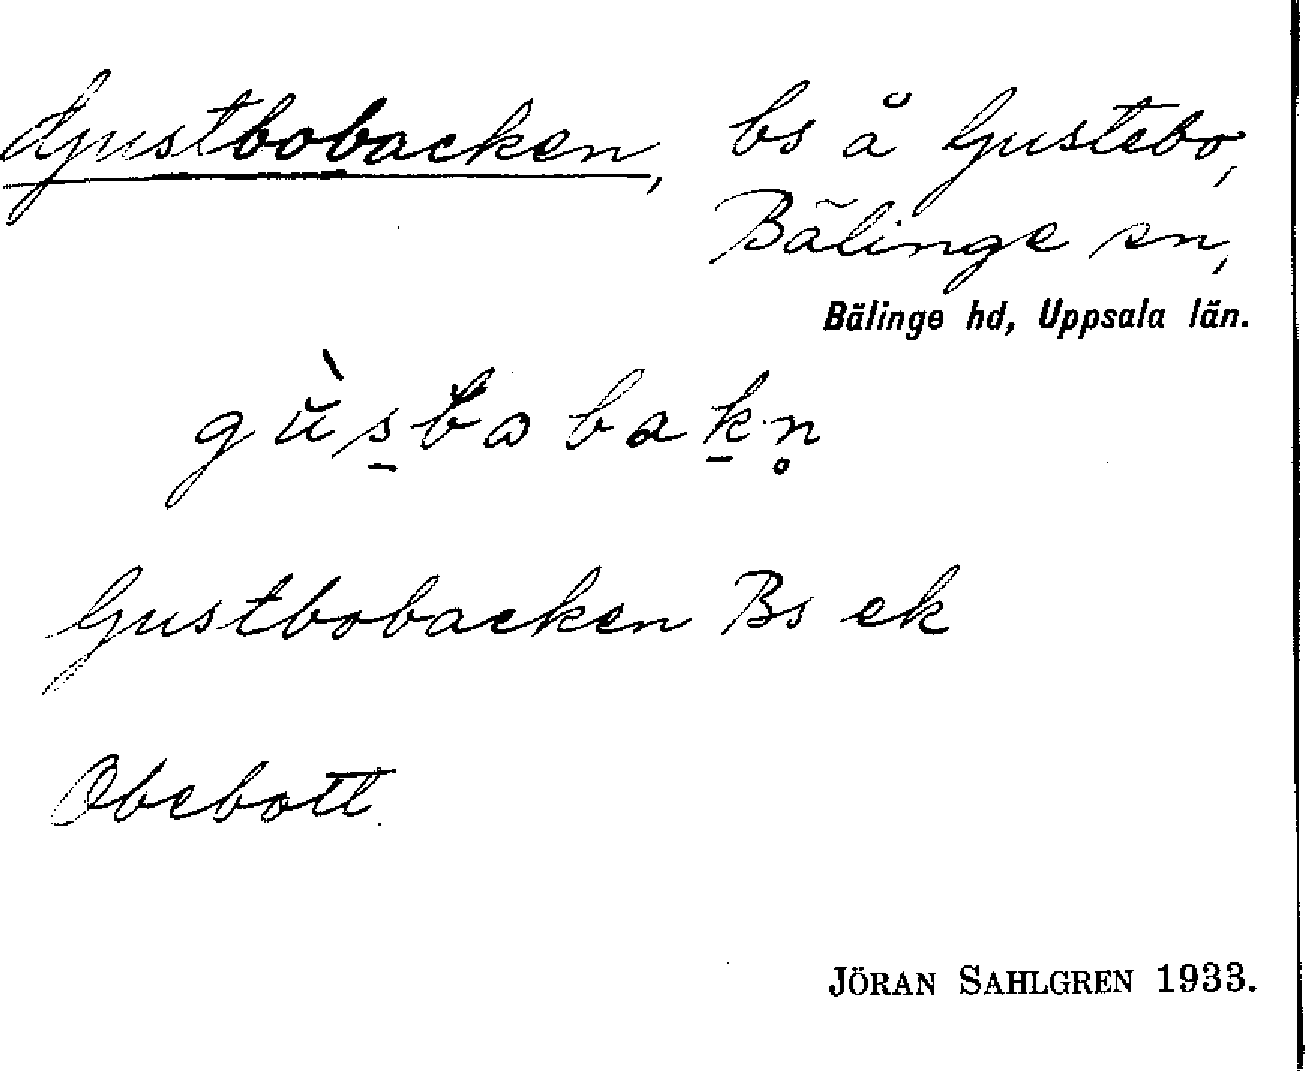 Gustbobacken, bs å Gustebo,
Bälinge sn,
Bälinge hd, Uppsala län.
Gustbobacken Bs ek
Obebott.
JÖRAN SAHLGREN 1933.